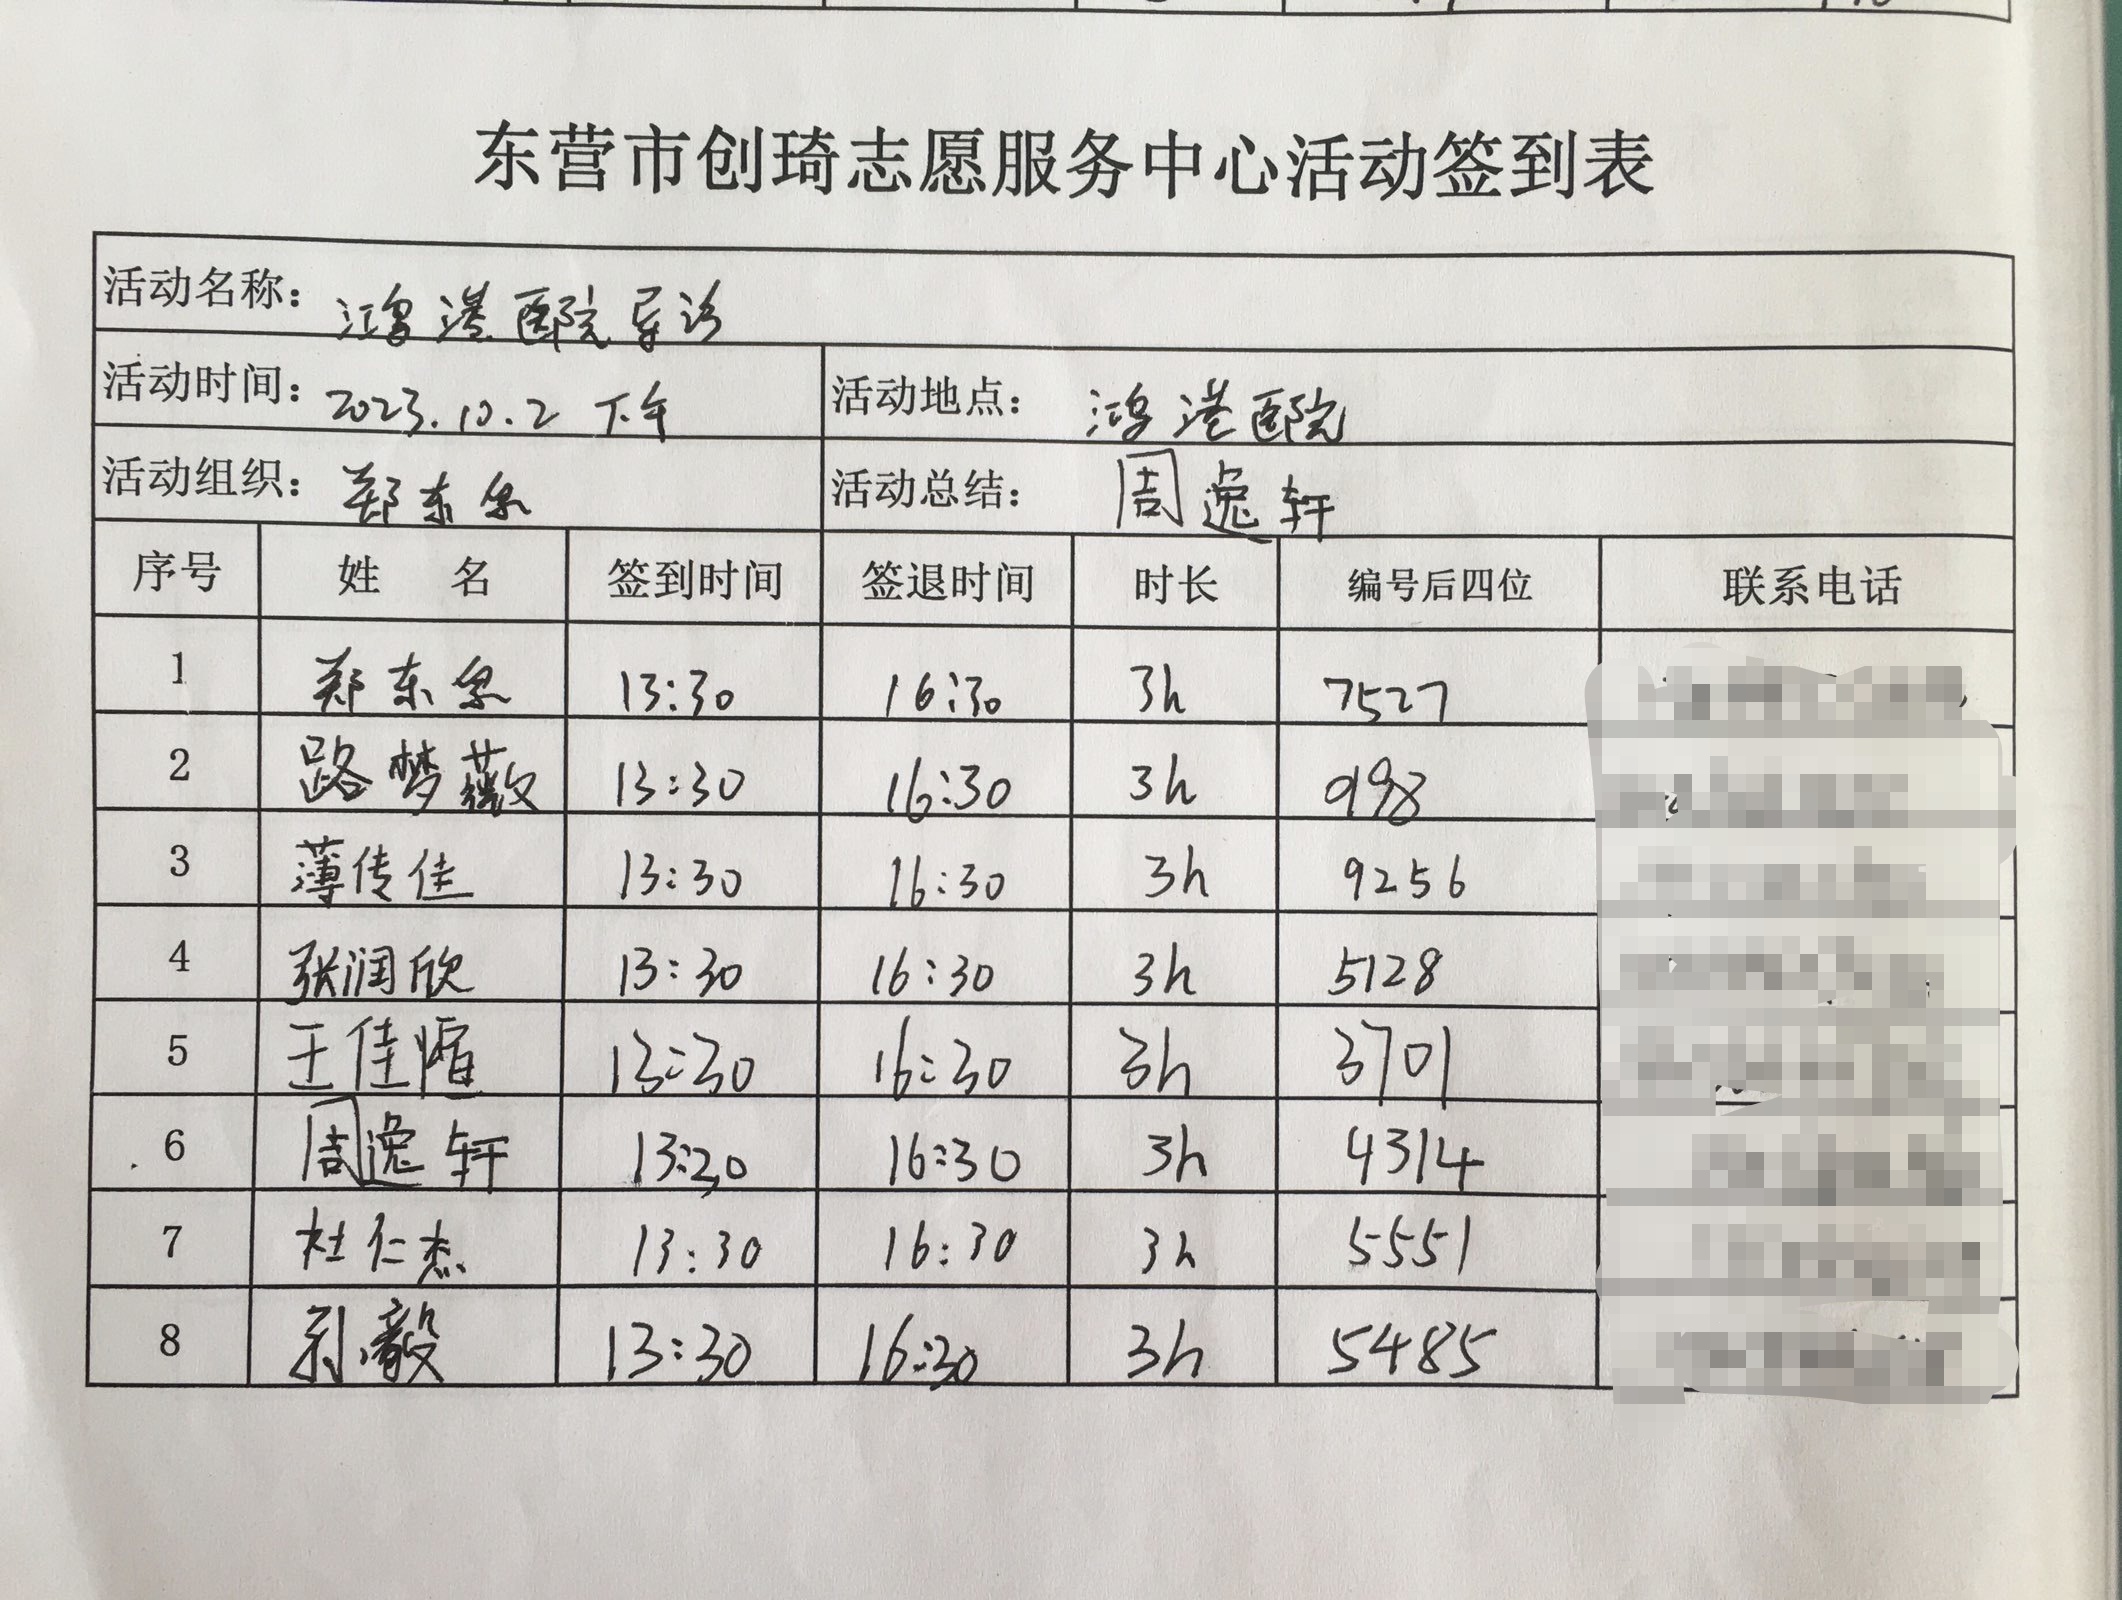 东营市创琦志愿服务中心活动签到表
活动名称：鸿港医院导诊
活动时间：2023.10.2 下午 活动地点：鸿港医院
活动组织：郑东 活动总结：周逸轩
序号 姓 名 签到时间 签退时间 时长 编号后四位 联系电话
1 郑东 13:30 16:30 3h 7527
2 路梦薇 13:30 16:30 3h 998
3 薄传佳 13:30 16:30 3h 9256
4 张润欣 13:30 16:30 3h 5128
5 王佳愃 13:30 16:30 3h 3701
6 周逸轩 13:30 16:30 3h 4314
7 杜仁杰 13:30 16:30 3h 5551
8 孙毅 13:30 16:30 3h 5485